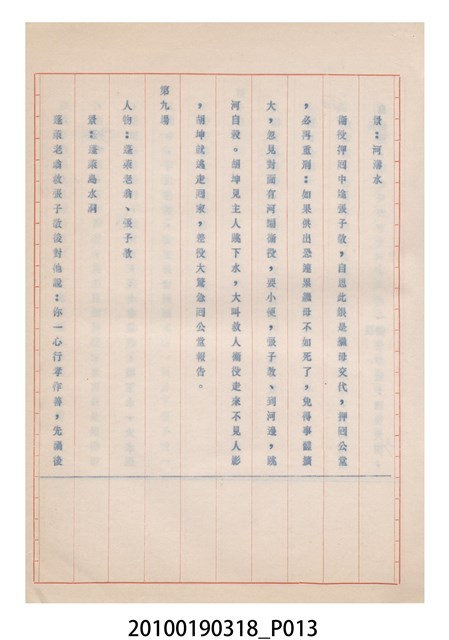 景：河邊水
衙役押回中途張子敎，自思此銀是繼母交代，押回公堂
，必再重刑：如果供出恐連累繼母不如死了，免得事體擴
大，忽見對面有河騙衙役，要小便，張子敎、到河邊，跳
河自殺。胡坤見主人跳下水，大叫救人衙役走來不見人影
，胡坤就逃走回家，差役大驚急回公堂報告。
第九場
人物：蓬萊老翁、張子敎
景：蓬萊島水洞
蓬萊老翁救張子敎後對他說：你一心行孝作善，先禍後
20100190318_P013